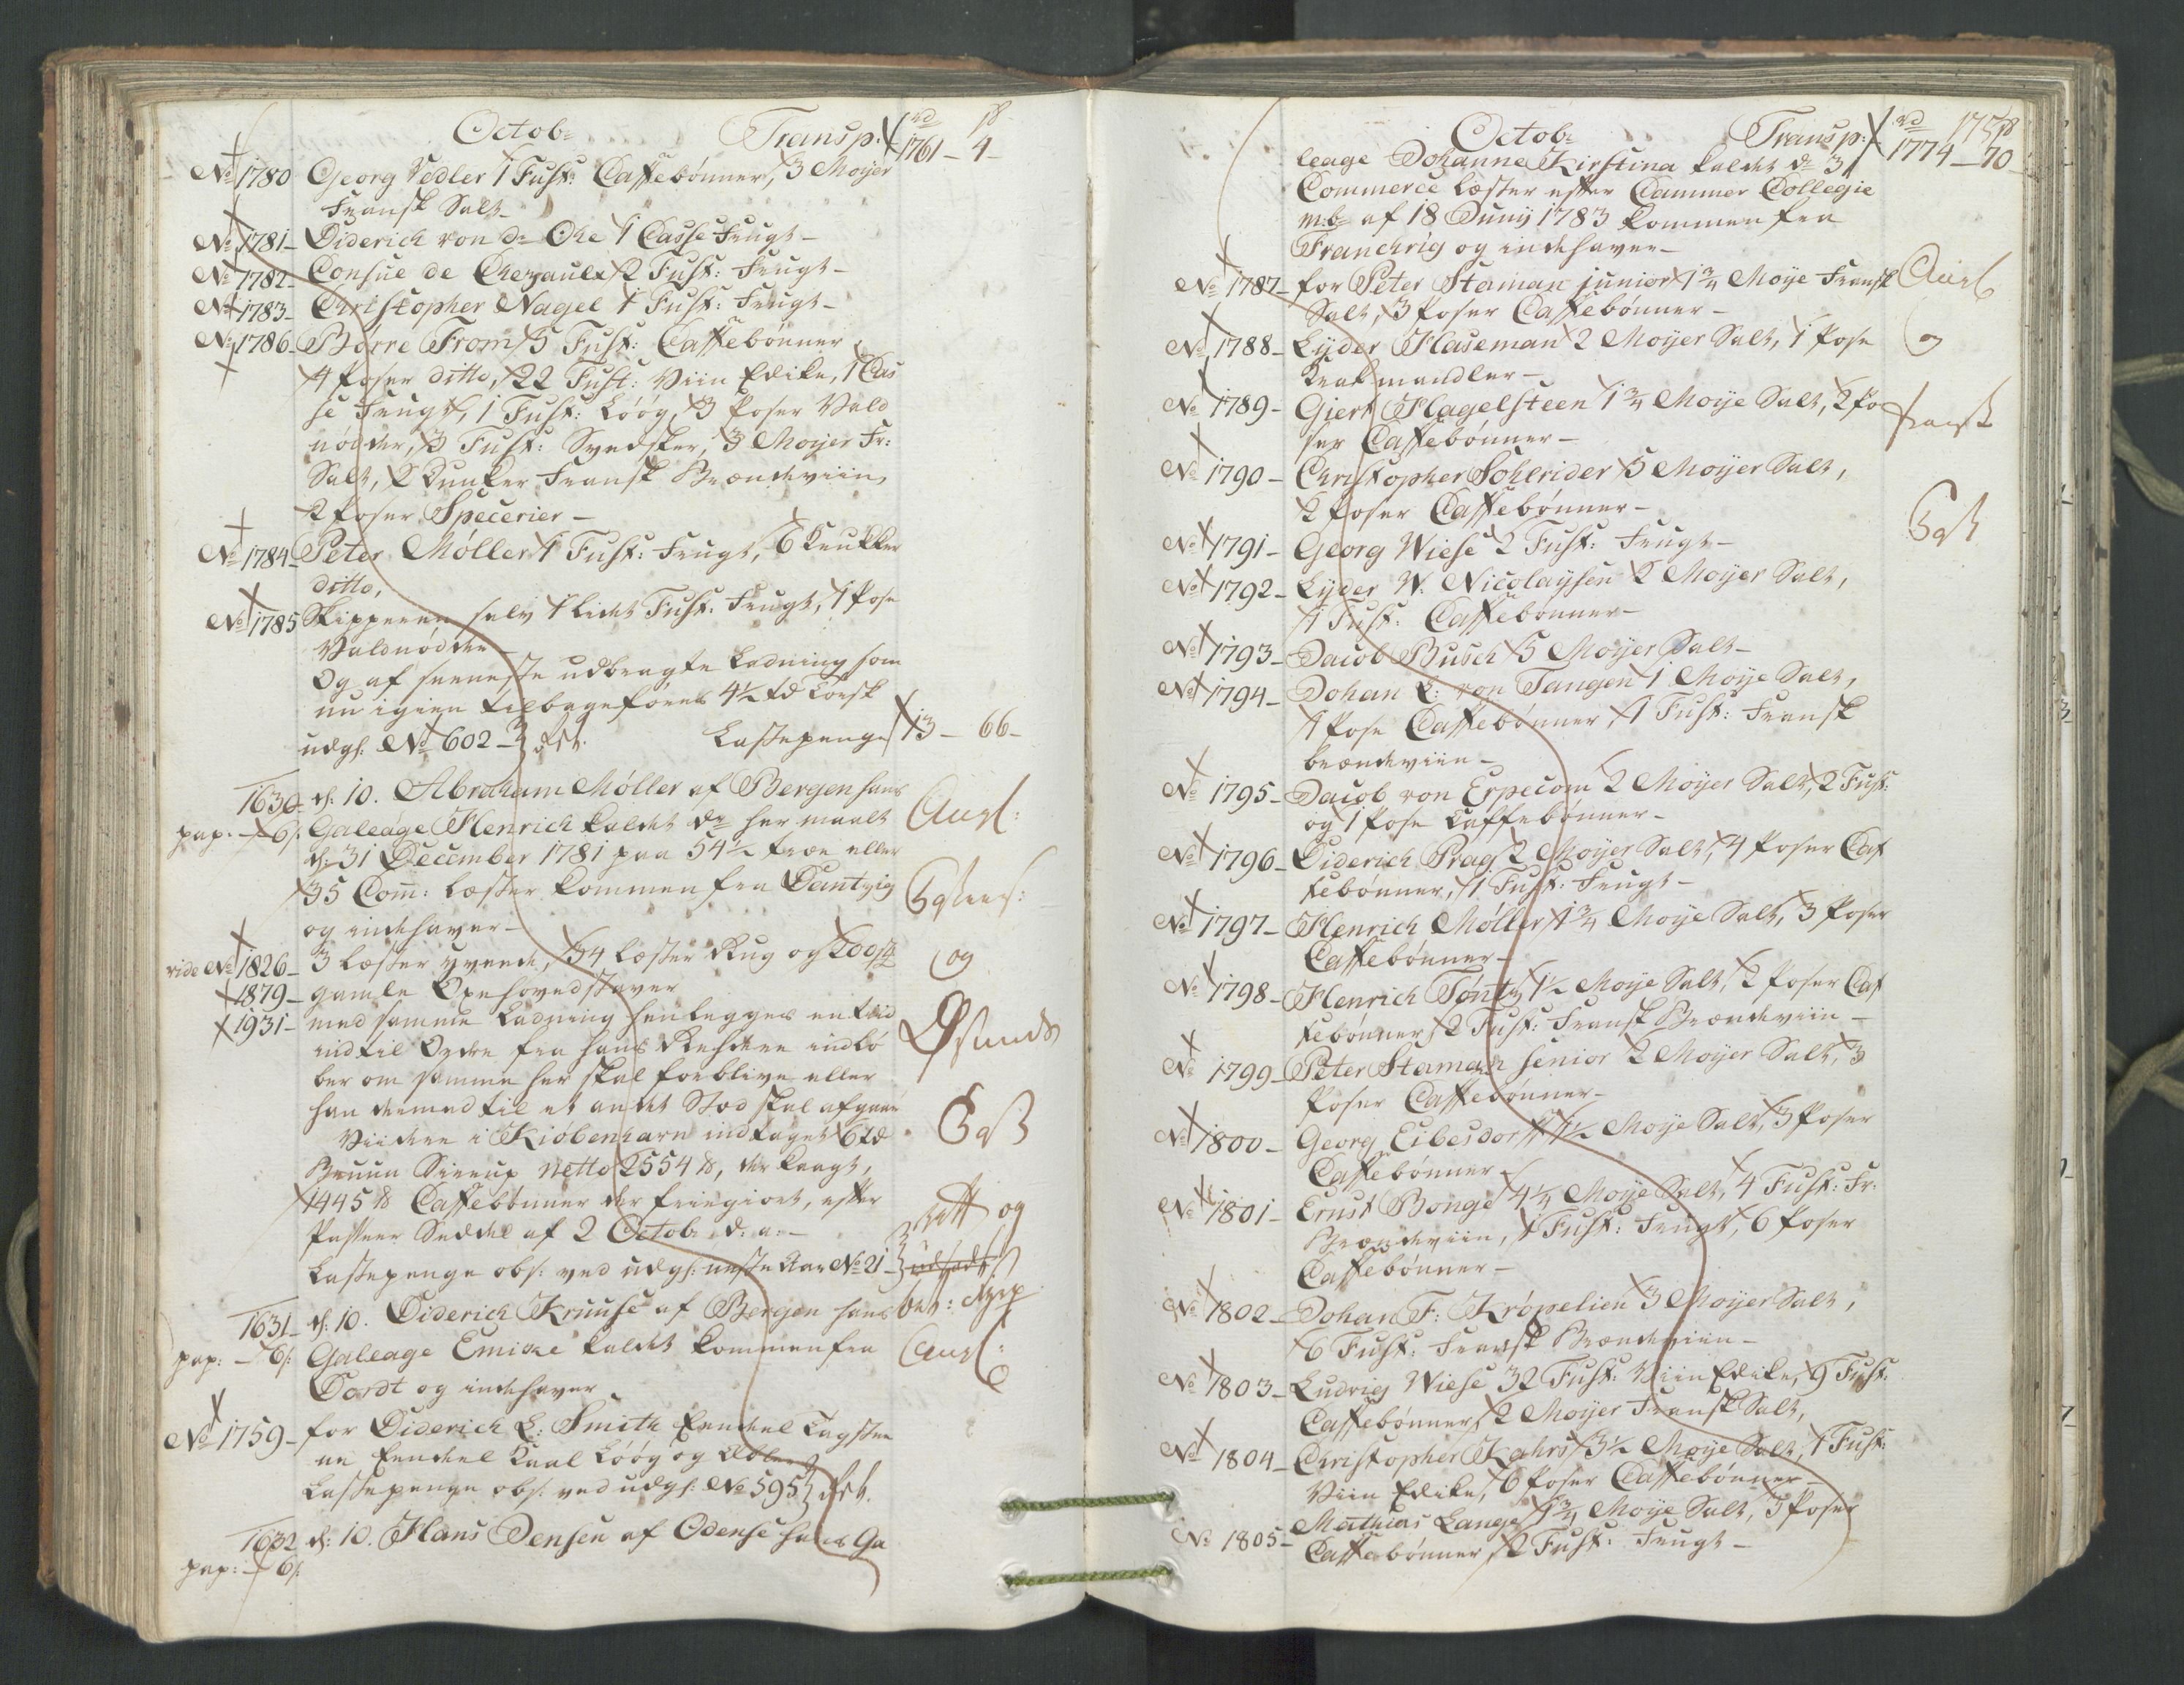 Octob:
Transp: rd 1761 – 4 –
No 1780 Georg Vedler 1 Fust: Caffebønner, 3 Moyer
Fransk Salt –
No 1781 – Diderich von d: Ohe 1 Casse Frugt –
No 1782 – Consue de Chezaulx 2 Fust: Frugt –
No 1783 – Christopher Nagel 1 Fust: Frugt –
No 1786 – Børre From 5 Fust: Caffebønner
4 Poser ditto, 22 Fust: Viin Edike, 1 Cas
se Frugt, 1 Fust: Løög, 3 Poser Vald
nødder, 3 Fust: Svedsker, 3 Moyer Fr:
Salt, 2 Dunker Fransk Brændeviin,
2 Poser Specerier –
No 1784 – Peter Møller 1 Fust: Frugt, 6 Krukker
ditto,
No 1785 Skipperen selv 1 lidet Fust: Frugt, 1 Pose
Valdnødder –
Og af seeneste udbragte Ladning som
nu igien tilbageføres 4½ td Torsk
udgf: No 602 – Lastepenge 13 – 66 –
1630 – d: 10. Abraham Møller af Bergen hans
pap: – 6 s. Galeage Henrich kaldet der her maalt
d: 31 December 1781 paa 54½ træe eller
35 Com: Læster kommen fra Dantzig
og indehaver –
vide No 1826 – 3 Læster svarede, 34 Læster Rug og 200
1879 – gamle Oxehovedstaver
1931 – med samme Ladning henlegges en tiid
indtil Ordre fra hans Rehdere indlø
ber om samme her skal forblive eller
han dermed til et andet Stæd skal afgaae
Viidere i Kiøbenhavn indtaget 6 td
Bruun Sirrup netto 2554 lb, der laugt,
1445 lb Caffebønner der friegiort, efter
Passeer Seddel af 2 Octob: d: a: –
Lastepenge obs: ved udgf: neste Aar No 21 –
1631 – d: 10. Diderich Kruuse af Bergen hans
pap: – 6 s. Galeage Emicke kaldet kommen fra
Dordt og indehaver
No 1759 – for Diderich L: Smith Eendeel Tagstee
ne Eendeel Kaal Løög og Æbler
Lastepenge obs: ved udgf: No 595
1632 d: 10. Hans Jensen af Odense hans Ga
pap: – 6 s.
175
Octob:
Transp: rd 1774 – 70 –
leage Johanne Kirstina kaldet dr: 31
Commerce Læster efter Cammer Collegie
m:b: af 18 Junij 1783 kommen fra
Franchrig og indehaver –
No 1787 – for Peter Staman junior 1¾ Moye Fransk
Salt, 3 Poser Caffebønner –
No 1788 – Lyder Haseman 2 Moyer Salt, 1 Pose
Krakmandler –
No 1789 – Giert Hagelsteen 1¾ Moye Salt, 2 Po
ser Caffebønner –
No 1790 – Christopher Sohlrider 5 Moyer Salt,
2 Poser Caffebønner –
No 1791 – Georg Wiese 2 Fust: Frugt –
No 1792 – Lyder W: Nicolaysen 2 Moyer Salt,
1 Fust: Caffebønner –
No 1793 – Jacob Busch 5 Moyer Salt –
No 1794 – Johan L: von Tangen 1 Moye Salt,
1 Pose Caffebønner 1 Fust: Fransk
brændeviin –
No 1795 – Jacob von Erpecom 2 Moyer Salt, 2 Fust:
og 1 Pose Caffebønner –
No 1796 – Diderich Prag 2 Moyer Salt, 4 Poser Caf
febønner, 1 Fust: Frugt –
No 1797 – Henrich Møller 1¾ Moye Salt, 3 Poser
Caffebønner –
No 1798 – Henrich Tøntz 1½ Moye Salt, 2 Poser Caf
febønner 2 Fust: Fransk Brændeviin –
No 1799 – Peter Staman senior 2 Moyer Salt, 3
Poser Caffebønner –
No 1800 – Georg Eibesdorff 1½ Moye Salt, 3 Poser
Caffebønner –
No 1801 – Ernst Bonge 4¼ Moye Salt, 4 Fust: Fr:
Brændeviin, 1 Fust: Frugt, 6 Poser
Caffebønner –
No 1802 – Johan F: Krøpelien 3 Moyer Salt,
6 Fust: Fransk Brændeviin –
No 1803 – Ludvig Wiese 32 Fust: Viin Edike, 9 Fust:
Caffebønner, 2 Moyer Fransk Salt,
No 1804 – Christopher Kahrs 3½ Moye Salt, 1 Fust:
Viin Edike, 6 Poser Caffebønner –
No 1805 – Mathias Lange 1¾ Moye Salt, 3 Poser
Caffebønner 2 Fust: Frugt –